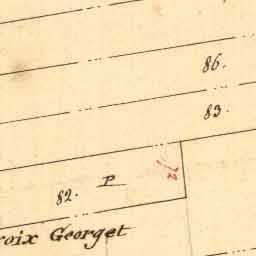 86.
83.
82. P
roix Georget